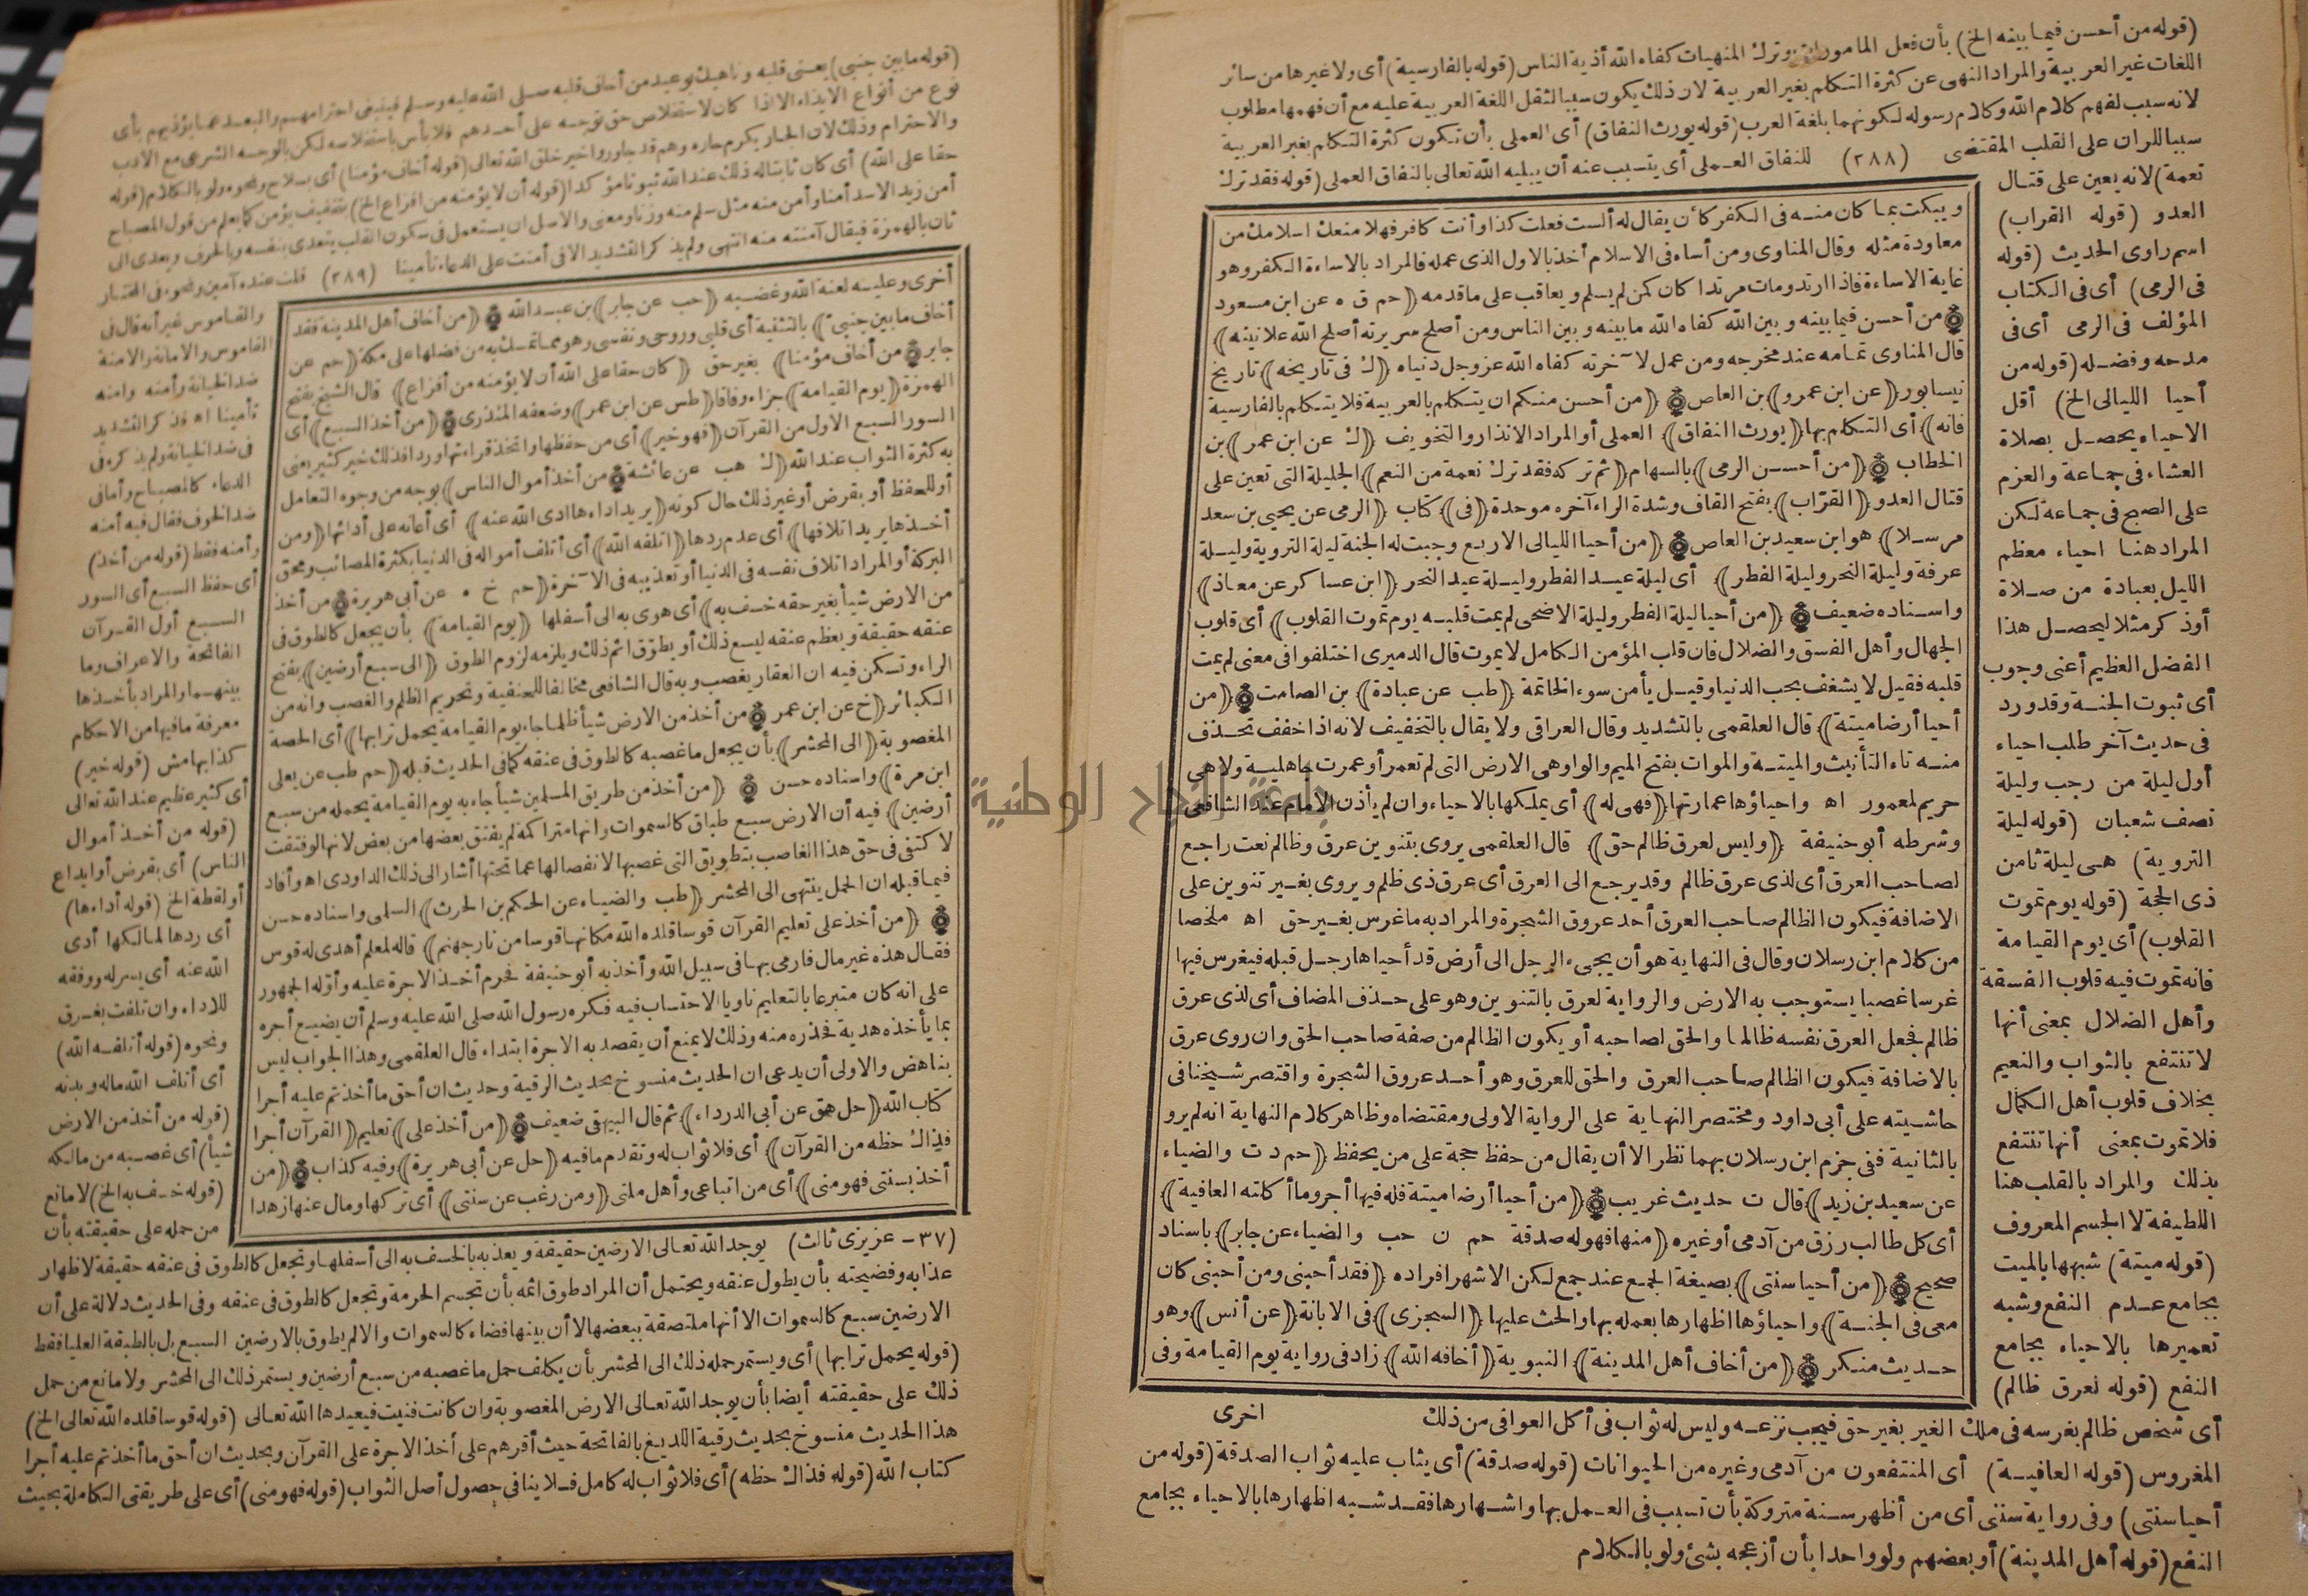 (قوله من أحسن فيما بينه الخ) بأن فعل المأمورات وترك المنهيات كفاه الله أذية الناس (قوله بالفارسية) أى ولا غيرها من سائر
اللغات غير العربية والمراد النهى عن كثرة التكلم بغير العربية لان ذلك يكون سببا لثقل اللغة العربية عليه مع أن فهمها مطلوب
لانه سبب لفهم كلام الله وكلام رسوله لكونهما بلغة العرب (قوله يورث النفاق) أى العملى بأن تكون كثرة التكلم بغير العربية
سببا للران على القلب المقتضى (٢٨٨) للنفاق العملى أى يتسبب عنه أن يبليه الله تعالى بالنفاق العملى (قوله فقد ترك
نعمة) لانه يعين على قتال
العدو (قوله القراب)
اسم راوى الحديث (قوله
فى الرمى) أى فى الكتاب
المؤلف فى الرمى أى فى
مدحه وفضله (قوله من
أحيا الليالى الخ) أقل
الاحياء يحصل بصلاة
العشاء فى جماعة والعزم
على الصبح فى جماعة لكن
المراد هنا احياء معظم
الليل بعبادة من صلاة
أو ذكر مثلا ليحصل هذا
الفضل العظيم أعنى وجوب
أى ثبوت الجنة وقد ورد
فى حديث آخر طلب احياء
أول ليلة من رجب وليلة
نصف شعبان (قوله ليلة
التروية) هى ليلة ثامن
ذى الحجة (قوله يوم تموت
القلوب) أى يوم القيامة
فانه تموت فيه قلوب الفسقة
وأهل الضلال بمعنى أنها
لا تنتفع بالثواب والنعيم
بخلاف قلوب أهل الكمال
فلا تموت بمعنى أنها تنتفع
بذلك والمراد بالقلب هنا
اللطيفة لا الجسم المعروف
(قوله ميتة) شبهها بالميت
بجامع عدم النفع وشبه
تعميرها بالاحياء بجامع
النفع (قوله لعرق ظالم)
ويبكت بما كان منه فى الكفر كأن يقال له ألست فعلت كذا وأنت كافر فهلا منعك اسلامك من
معاودة مثله وقال المناوى ومن أساء فى الاسلام أخذ بالاول الذى عمله فالمراد بالاساءة الكفر وهو
غاية الاساءة فاذا ارتد ومات مرتدا كان كمن لم يسلم ويعاقب على ما قدمه (حم ق ه عن ابن مسعود
من أحسن فيما بينه وبين الله كفاه الله ما بينه وبين الناس ومن أصلح سريرته أصلح الله علانيته)
قال المناوى تمامه عند مخرجه ومن عمل لآخرته كفاه الله عز وجل دنياه (ك فى تاريخه) تاريخ
نيسابور (عن ابن عمرو) بن العاص (من أحسن منكم ان يتكلم بالعربية فلا يتكلم بالفارسية
فانه) أى التكلم بها (يورث النفاق) العملى أو المراد الانذار والتخويف (ك عن ابن عمر) بن
الخطاب (من أحسن الرمى) بالسهام (ثم تركه فقد ترك نعمة من النعم) الجليلة التى تعين على
قتال العدو (القراب) بفتح القاف وشدة الراء آخره موحدة (فى) كتاب (الرمى عن يحيى بن سعد
مرسلا) هو ابن سعيد بن العاص (من أحيا الليالى الاربع وجبت له الجنة ليلة التروية وليلة
عرفة وليلة النحر وليلة الفطر) أى ليلة عيد الفطر وليلة عيد النحر (ابن عساكر عن معاذ)
واسناده ضعيف (من أحيا ليلة الفطر وليلة الاضحى لم يمت قلبه يوم تموت القلوب) أى قلوب
الجهال وأهل الفسق والضلال فان قلب المؤمن الكامل لا يموت قال الدميرى اختلفوا فى معنى لم يمت
قلبه فقيل لا يشغف بحب الدنيا وقيل يأمن سوء الخاتمة (طب عن عبادة) بن الصامت (من
أحيا أرضا ميتة) قال العلقمى بالتشديد وقال العراقى ولا يقال بالتخفيف لانه اذا خفف تحذف
منه تاء التأنيث والميتة والموات بفتح الميم والواو هى الارض التى لم تعمر أو عمرت جاهلية ولا هى
حريم لمعمور اه واحياؤها عمارتها (فهى له) أى يملكها بالاحياء وان لم يأذن الامام عند الشافعى
وشرطه أبو حنيفة (وليس لعرق ظالم حق) قال العلقمى يروى بتنوين عرق وظالم نعت راجع
لصاحب العرق أى لذى عرق ظالم وقد يرجع الى العرق أى عرق ذى ظلم ويروى بغير تنوين على
الاضافة فيكون الظالم صاحب العرق أحد عروق الشجرة والمراد به ما غرس بغير حق اه ملخصا
من كلام ابن رسلان وقال فى النهاية هو أن يجىء الرجل الى أرض قد أحياها رجل قبله فيغرس فيها
غرسا غصبا يستوجب به الارض والرواية لعرق بالتنوين وهو على حذف المضاف أى لذى عرق
ظالم فجعل العرق نفسه ظالما والحق لصاحبه أو يكون الظالم من صفة صاحب الحق وان روى عرق
بالاضافة فيكون الظالم صاحب العرق والحق للعرق وهو أحد عروق الشجرة واقتصر شيخنا فى
حاشيته على أبى داود ومختصر النهاية على الرواية الاولى ومقتضاه وظاهر كلام النهاية انه لم يرو
بالثانية ففى جزم ابن رسلان بهما نظر الا أن يقال من حفظ حجة على من يحفظ (حم د ت والضياء
عن سعيد بن زيد) قال ت حديث غريب (من أحيا أرضا ميتة فله فيها أجر وما أكلته العافية)
أى كل طالب رزق من آدمى أو غيره (منها فهو له صدقة حم ن حب والضياء عن جابر) باسناد
صحيح (من أحيا سنتى) بصيغة الجمع عند جمع لكن الاشهر افراده (فقد أحبنى ومن أحبنى كان
معى فى الجنة) واحياؤها اظهارها بعمله بها والحث عليها (السجزى) فى الابانة (عن أنس) وهو
حديث منكر (من أخاف أهل المدينة) النبوية (أخافه الله) زاد فى رواية يوم القيامة وفى
اخرى
أى شخص ظالم بغرسه فى ملك الغير بغير حق فيجب نزعه وليس له ثواب فى أكل العوافى من ذلك
المغروس (قوله العافية) أى المنتفعون من آدمى وغيره من الحيوانات (قوله صدقة) أى يثاب عليه ثواب الصدقة (قوله من
أحيا سنتى) وفى رواية سنتى أى من أظهر سنة متروكة بأن تسبب فى العمل بها واشهارها فقد شبه اظهارها بالاحياء بجامع
النفع (قوله أهل المدينة) أو بعضهم ولو واحدا بأن أزعجه بشئ ولو بالكلام
(قوله ما بين جنبى) يعنى قلبه وناهيك بوعيد من أخاف قلبه صلى الله عليه وسلم فينبغى احترامهم والبعد عما يؤذيهم بأى
نوع من أنواع الايذاء الا اذا كان لاستخلاص حق توجه على أحدهم فلا بأس باستخلاصه لكن بالوجه الشرعى مع الادب
والاحترام وذلك لان الجار يكرم جاره وهم قد جاوروا خير خلق الله تعالى (قوله أخاف مؤمنا) أى بسلاح ونحوه ولو بالكلام (قوله
حقا على الله) أى كان ثابتا له ذلك عند الله ثبوتا مؤكدا (قوله أن لا يؤمنه من افزاع الخ) بتخفيف يؤمن كما يعلم من قول المصباح
أمن زيد الاسد أمنا وأمن منه مثل سلم منه وزنا ومعنى والاصل ان يستعمل فى سكون القلب يتعدى بنفسه وبالحرف ويعدى الى
ثان بالهمزة فيقال آمنته منه انتهى ولم يذكر التشديد الا فى أمنت على الدعاء تأمينا (٢٨٩) قلت عنده آمين ونحوه فى المختار
والقاموس غير أنه قال فى
القاموس والامانة والامنة
ضد الخيانة وأمنه وامنه
تأمينا اه فذكر التشديد
فى ضد الخيانة ولم يذكره فى
الدعاء كالمصباح وأما فى
ضد الخوف فقال فيه أمنه
وآمنه فقط (قوله من أخذ)
أى حفظ السبع أى السور
السبع أول القرآن
الفاتحة والاعراف وما
بينهما والمراد بأخذها
معرفة ما فيها من الاحكام
كذا بهامش (قوله خير)
أى كثير عظيم عند الله تعالى
(قوله من أخذ أموال
الناس) أى بقرض أو ايداع
أو لقطة الخ (قوله أداءها)
أى ردها لمالكها أدى
الله عنه أى يسر له ووفقه
للاداء وان تلفت بغرق
ونحوه (قوله أتلفه الله)
أى أتلف الله ماله وبدنه
(قوله من أخذ من الارض
شيأ) أى غصبه من مالكه
(قوله خسف به الخ) لا مانع
من حمله على حقيقته بأن
أخرى وعليه لعنة الله وغضبه (حب عن جابر) بن عبد الله (من أخاف أهل المدينة فقد
أخاف ما بين جنبى) بالتثنية أى قلبى وروحى ونفسى وهو مما تمسك به من فضلها على مكة (حم عن
جابر من أخاف مؤمنا) بغير حق (كان حقا على الله أن لا يؤمنه من أفزاع) قال الشيخ بفتح
الهمزة (يوم القيامة) جزاء وفاقا (طس عن ابن عمر) وضعفه المنذرى (من أخذ السبع) أى
السور السبع الاول من القرآن (فهو خير) أى من حفظها واتخذ قراءتها وردا فذلك خير كثير يعنى
به كثرة الثواب عند الله (ك هب عن عائشة من أخذ أموال الناس) بوجه من وجوه التعامل
أو للحفظ أو بقرض أو غير ذلك حال كونه (يريد اداءها ادى الله عنه) أى أعانه على أدائها (ومن
أخذها يريد اتلافها) أى عدم ردها (اتلفه الله) أى أتلف أمواله فى الدنيا بكثرة المصائب ومحق
البركة أو المراد اتلاف نفسه فى الدنيا أو تعذيبه فى الآخرة (حم خ ه عن أبى هريرة من أخذ
من الارض شيأ بغير حقه خسف به) أى هوى به الى أسفلها (يوم القيامة) بأن يجعل كالطوق فى
عنقه حقيقة ويعظم عنقه ليسع ذلك أو يطوق اثم ذلك ويلزمه لزوم الطوق (الى سبع أرضين) بفتح
الراء وتسكن فيه ان العقار يغصب وبه قال الشافعى مخالفا للحنفية وتحريم الظلم والغصب وانه من
الكبائر (خ عن ابن عمر من أخذ من الارض شيأ ظلما جاء يوم القيامة يحمل ترابها) أى الحصة
المغصوبة (الى المحشر) بأن يجعل ما غصبه كالطوق فى عنقه كما فى الحديث قبله (حم طب عن يعلى
ابن مرة) واسناده حسن (من أخذ من طريق المسلمين شيأ جاء به يوم القيامة يحمله من سبع
أرضين) فيه أن الارض سبع طباق كالسموات وانها متراكمة لم يفتق بعضها من بعض لانها لو فتقت
لاكتفى فى حق هذا الغاصب بتطويق التى غصبها لانفصالها عما تحتها أشار الى ذلك الداودى اه وأفاد
فيما قبله ان الحمل ينتهى الى المحشر (طب والضياء عن الحكم بن الحرث) السلمى واسناده حسن
(من أخذ على تعليم القرآن قوسا قلده الله مكانها قوسا من نار جهنم) قاله لمعلم أهدى له قوس
فقال هذه غير مال فارمى بها فى سبيل الله وأخذ به أبو حنيفة فحرم أخذ الاجرة عليه وأوّله الجمهور
على انه كان متبرعا بالتعليم ناويا الاحتساب فيه فكره رسول الله صلى الله عليه وسلم أن يضيع أجره
بما يأخذه هدية فحذره منه وذلك لا يمنع أن يقصد به الاجرة ابتداء قال العلقمى وهذا الجواب ليس
بناهض والاولى أن يدعى ان الحديث منسوخ بحديث الرقية وحديث ان أحق ما أخذتم عليه أجرا
كتاب الله (حل هق عن أبى الدرداء) ثم قال البيهقى ضعيف (من أخذ على) تعليم (القرآن أجرا
فذاك حظه من القرآن) أى فلا ثواب له وتقدم ما فيه (حل عن أبى هريرة) وفيه كذاب (من
أخذ بسنتى فهو منى) أى من اتباعى وأهل ملتى (ومن رغب عن سنتى) أى تركها ومال عنها زهدا
(٣٧ - عزيزى ثالث) يوجد الله تعالى الارضين حقيقة ويعذبه بالخسف به الى أسفلها وتجعل كالطوق فى عنقه حقيقة لاظهار
عذابه وفضيحته بأن يطول عنقه ويحتمل أن المراد طوق اثمه بأن تجسم الحرمة وتجعل كالطوق فى عنقه وفى الحديث دلالة على أن
الارضين سبع كالسموات الا أنها ملتصقة ببعضها لا أن بينها فضاء كالسموات والا لم يطوق بالارضين السبع بل بالطبقة العليا فقط
(قوله يحمل ترابها) أى ويستمر حمله ذلك الى المحشر بأن يكلف حمل ما غصبه من سبع أرضين ويستمر ذلك الى المحشر ولا مانع من حمل
ذلك على حقيقته أيضا بأن يوجد الله تعالى الارض المغصوبة وان كانت فنيت فيعيدها الله تعالى (قوله قوسا قلده الله تعالى الخ)
هذا الحديث منسوخ بحديث رقية اللديغ بالفاتحة حيث أقرهم على أخذ الاجرة على القرآن وبحديث ان أحق ما أخذتم عليه أجرا
كتاب الله (قوله فذاك حظه) أى فلا ثواب له كامل فلا ينافى حصول أصل الثواب (قوله فهو منى) أى على طريقتى الكاملة بحيث
جامعة النجاح الوطنية